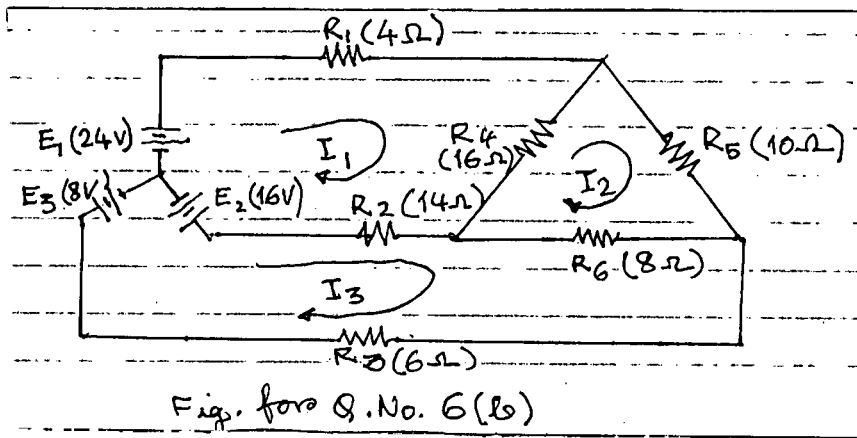 R1 (4Ω)
E1 (24V)
I1
R4 (16Ω)
R5 (10Ω)
I2
E3 (8V)
E2 (16V)
R2 (14Ω)
R6 (8Ω)
I3
R3 (6Ω)
Fig. for Q.No. 6(b)